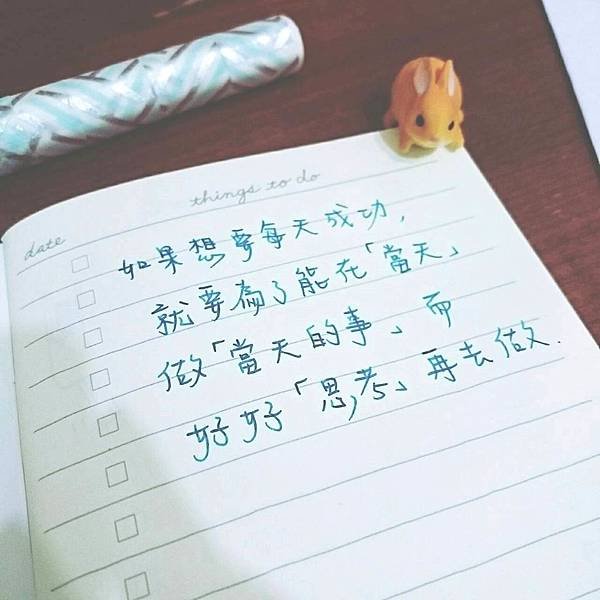 things to do
date
如果想要每天成功,
就要為了能在「當天」
做「當天的事」而
好好「思考」再去做.